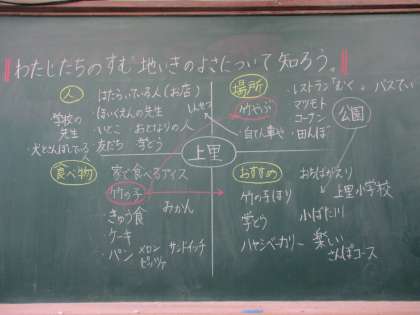 わたしたちのすむ地いきのよさについて知ろう。
人
はたらいている人(お店)
ほいくえんの先生
いとこ おとなりの人
友だち 学どう
学校の
先生
犬とさんぽしている
人
しんせつ
場所
竹やぶ
・レストラン「むく」 ・バスてい
マツモト
コーナン
・自てん車や ・田んぼ
公園
上里
食べ物
家で食べるアイス
竹の子
きゅう食
ケーキ
・パン メロン サンドイッチ
ピッツァ
みかん
おすすめ
おちばがえり
上里小学校
竹の子ほり
学どう
小ばたけ
ハヤシベーカリー
楽しい
さんぽコース